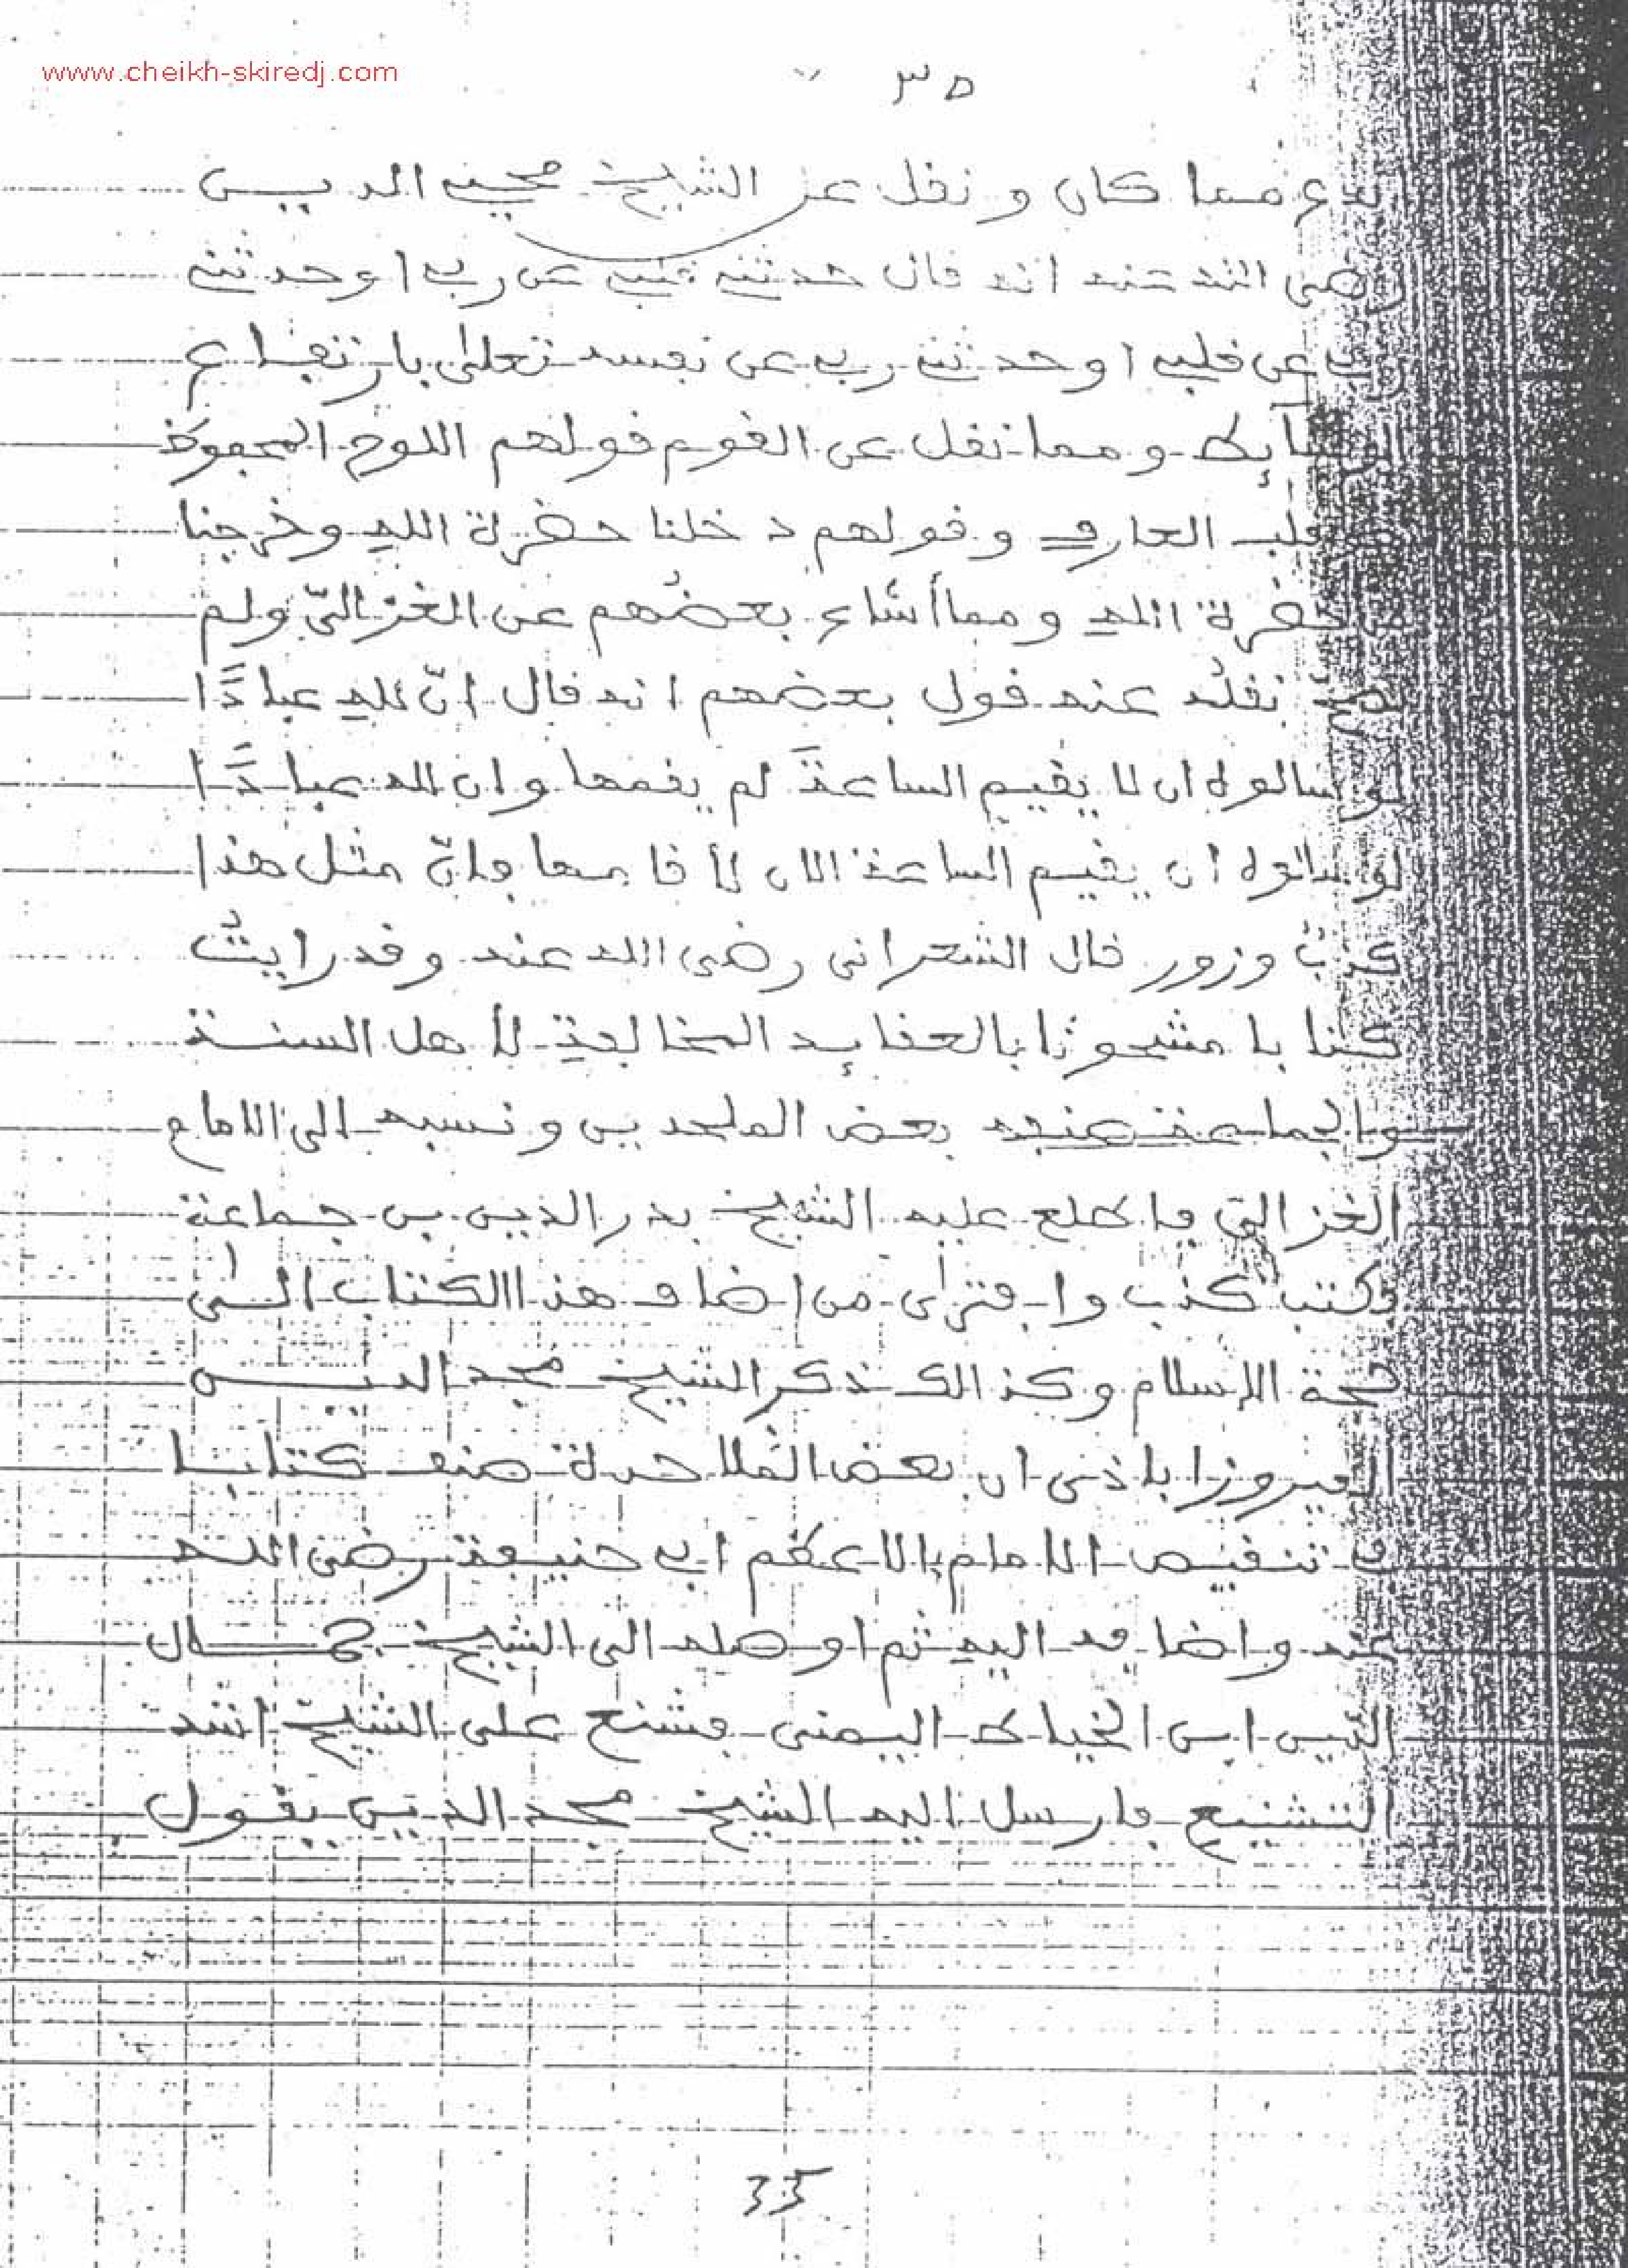 www.cheikh-skiredj.com
٣٥
مما كان ونقل عن الشيخ محيي الدين
رضي الله عنه انه قال حدثني قلبي عن ربي او حدثني
ربي عن قلبي او حدثني ربي عن نفسه تعلى بارتفاع
الوسآئط ومما نقل عن القوم قولهم اللوح المحفوظ
قلب العارف وقولهم دخلنا حضرة الله وخرجنا
حضرة الله ومما أشاع بعضُهم عن الغزاليّ ولم
يصح نقلُه عنه قول بعضهم انه قال انّ لله عبادًا
لو سالوه ان لا يقيم الساعةَ لم يقمها وان لله عبادًا
لو سالوه ان يقيم الساعة الان لأقامها وانّ مثل هذا
كذبٌ وزور قال الشعرانى رضي الله عنه وقد رايتُ
كتابا مشحونا بالعقايد المخالفة لأهل السنة
والجماعة صنفه بعض الملحدين ونسبه الى الامام
الغزاليّ فاطلع عليه الشيخ بدر الدين بن جماعة
وكتب كذب وافترى من اضاف هذا الكتاب الى
حجة الاسلام وكذالك ذكر الشيخ مجد الدين
الفيروزاباذى ان بعض الملاحدة صنف كتابا
في تنقيص الامام الاعظم ابي حنيفة رضي الله
عنه واضافه اليه ثم اوصله الى الشيخ جمال
الدين ابن الخياط اليمنى فشنع على الشيخ اشد
التشنيع فارسل اليه الشيخ مجد الدين يقول
35